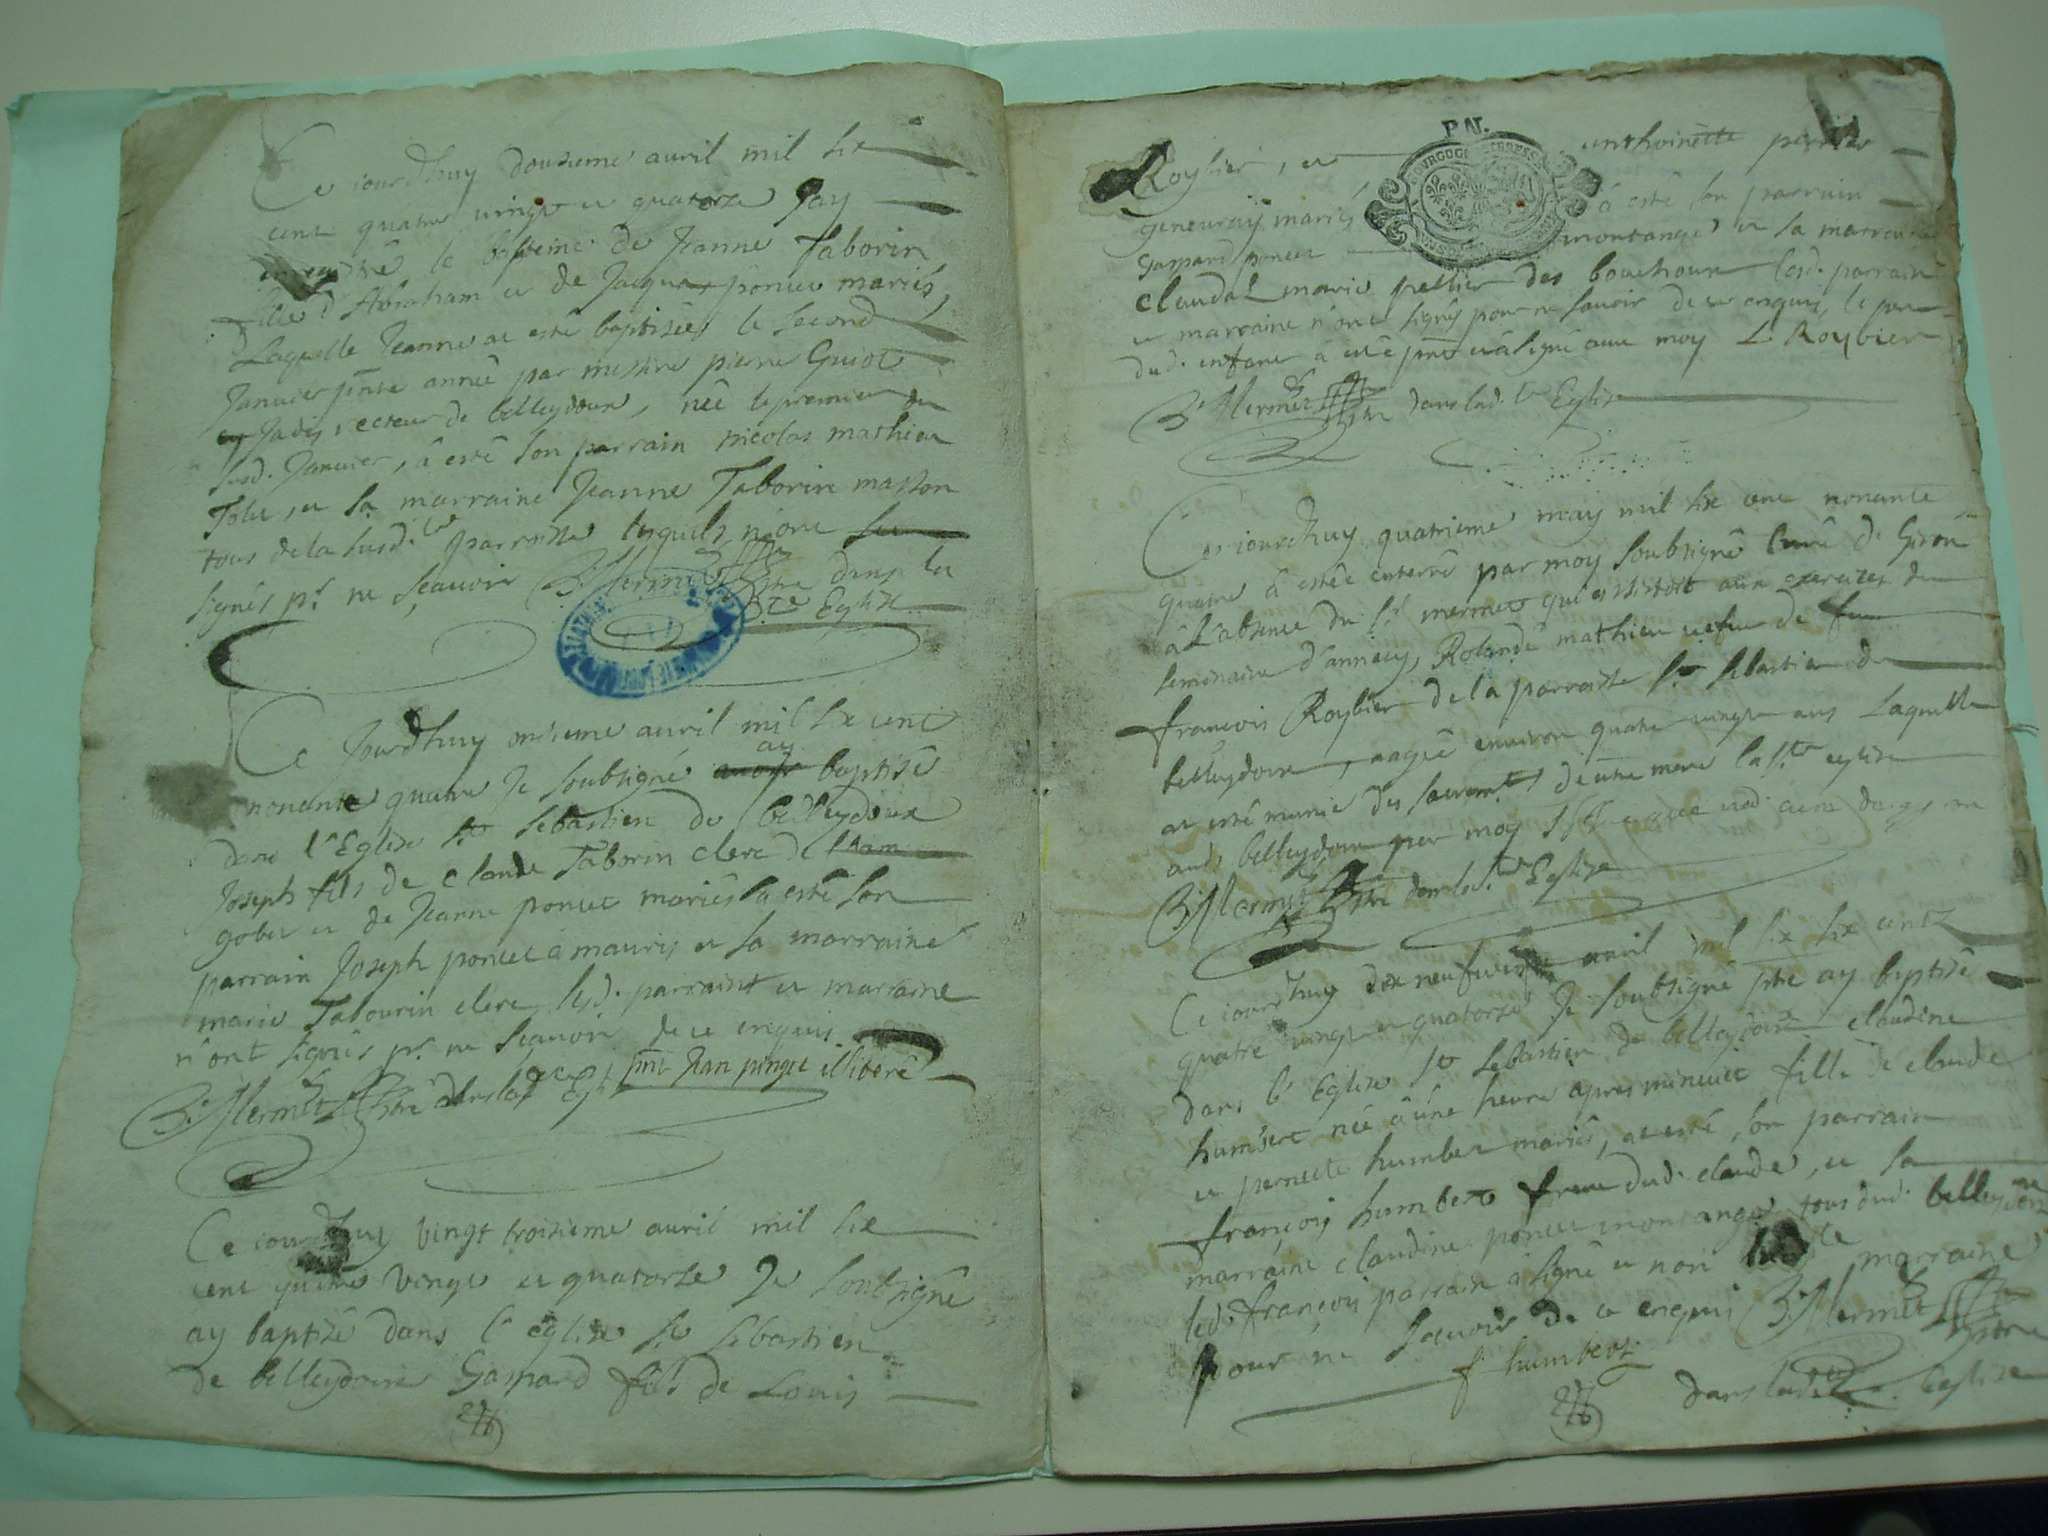 Ce iourdhuy dousieme auril mil six
cent quatre vingt et quatorze Jay
enregistré le bapteme de Jeanne Taborin
fille d'Abraham et de Jacqua poncet mariés,
Laquelle Jeanne at esté baptisée le second
Januier pnte année par messire pierre Guiot
Jadis recteur de belleydoux, née le premier du
susd. Januier, â esté son parrain nicolas mathieu
Tolu, et sa marraine Jeanne Taborin masson
tous de la susd.te parroisse lesquels n'ont
signés pr. ne scauoir B. Mermet ptre dans lad
te Eglise
Ce Jourdhuy onsieme auril mil six cent
nonante quatre Je soubsigné ay baptisé
dans l'Eglise st sebastien de belleydoux
Joseph fils de claude Taborin clerc de
gobet et de Jeanne poncet mariés, a esté son
parrain Joseph poncet â mauris et sa marraine
marie Tabourin clerc, lesd. parraint et marraine
n'ont signés pr. ne scauoir de ce enquis
B. Mermet ptre dans lad te Egl pnt Jean pinget
Ce iourdhuy vingt troisieme auril mil six
cent quatre vingt et quatorse Je soubsigné
ay baptisé dans l'eglise st sebastien
de belleydoux Gaspard fils de Louis
Roybier, et anthoinette perrier
geneuray mariés â esté son parrain
Gaspard poncet montange et sa marraine
claudaz marie pellier des bouchoux lesd. parrain
et marraine n'ont signés pour ne sauoir de ce enquis, le pere
dud. enfant â esté pnt et â signé auec moy L Roybier
B. Mermet ptre dans lad. te Eglise
Ce iourdhuy quatrieme may mil six cent nonante
quatre â estée enterré par moy soubsigné curé de Giron
â L'absence du sr mermet qui assistoit aux exercices du
seminaire d'annecy, Rolande mathieu uefue de feu
francois Roybier de la parroisse st sebastien de
belleydoux, aagée enuiron quatre vingt ans Laquelle
at esté munie des sacremts de notre mere la ste eglise
aud. belleydoux par moy
B. Mermet ptre dans lad. te Eglise
Ce iourdhuy dix neufuieme auril mil six six cent
quatre vingt et quatorse Je soubsigné ptre ay baptisé
dans l'Eglise st sebastien de belleydoux claudine
humbert née â une heure apres minuict fille de claude
et pernette humbert mariés, at esté son parrain
françois humbert frere dud. claude, et sa
marraine claudine poncet montange tous dud. belleydoux
led. françois parrain â signé et non la marraine
pour ne scauoir de ce enquis B. Mermet ptre
f humbert
dans lad. te Eglise